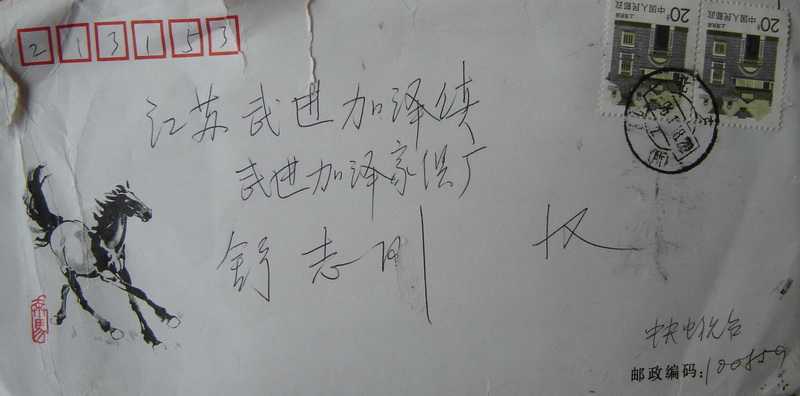 213153
江苏武进加泽镇
武进加泽家俱厂
舒志刚 收
中央电视台
邮政编码:100859
20分 中国人民邮政
20分 中国人民邮政
奔馬